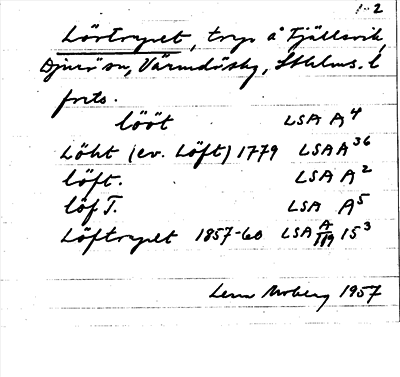 1-2
Lövtorpet, torp å Fjällsvik,
Djurö sn, Värmdö skg, Sthlms. l
forts.
lööt LSA A4
Löht (ev. Löft) 1779 LSA A36
löft. LSA A2
löf T. LSA A5
Löftorpet 1857-60 LSA A/119 15³
Lena Moberg 1957